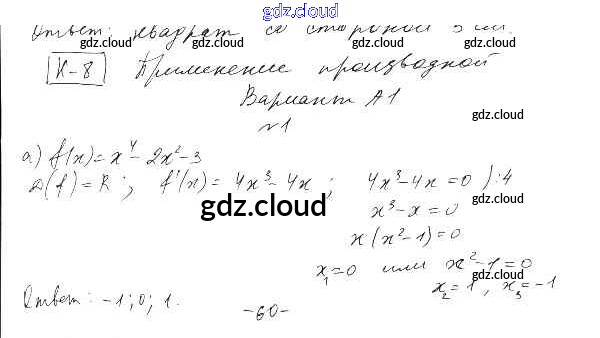 gdz.cloud
Ответ: квадрат со стороной см.
gdz.cloud gdz.cloud
К-8 Применение производной
Вариант А1
gdz.cloud
№1
а) f(x) = x⁴ - 2x² - 3
gdz.cloud
D(f) = R; f'(x) = 4x³ - 4x; 4x³ - 4x = 0 ) :4
gdz.cloud
gdz.cloud
x³ - x = 0
x(x² - 1) = 0
x₁ = 0 или x² - 1 = 0
gdz.cloud gdz.cloud
x₂ = 1, x₃ = -1
Ответ: -1; 0; 1.
-60-